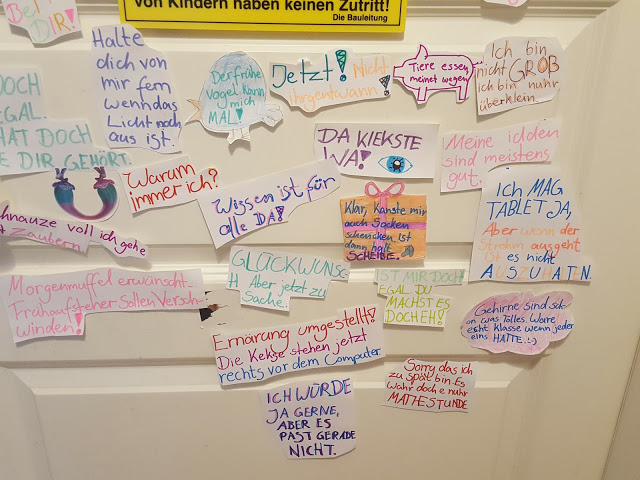 von Kindern haben keinen Zutritt!
Die Bauleitung
Bei
DIR!
Halte
dich von
mir fern
wenn das
Licht noch
aus ist.
Der frühe
Vogel kann
mich
MAL!
Jetzt! Nicht
irgentwann!
Tiere essen
meinet wegen
Ich bin
nicht GROß
ich bin nuhr
überklein.
DOCH
EGAL.
HAT DOCH
E DIR GEHÖRT.
DA KIEKSTE
WA!
Meine idden
sind meistens
gut.
Warum
immer ich?
Wissen ist für
alle DA!
Klar, kanste mir
auch Socken
schencken ist
dann halt
SCHEIßE.
ICH MAG
TABLET JA,
Aber wonn der
Strohm ausgeht
Ist es nicht
AUSZUHATN.
hnauze voll ich gehe
Zaubern
GLÜCKWUNSC
H Aber jetzt zu
Sache.
Morgenmuffel erwünscht-
Frühaufsteher Sollen Versch-
winden!
IST MIR DOCH
EGAL DU
MACHST ES
DOCH EH!
Gehirne sind sch-
on was Tolles. Wäre
echt Klasse wenn jeder
eins HÄTTE. :-)
Ernärung umgestellt!
Die Kekse stehen jetzt
rechts vor dem Computer
Sorry das ich
zu spät bin. Es
wahr doch e nuhr
MATHESTUNDE
ICH WÜRDE
JA GERNE,
ABER ES
PAST GERADE
NICHT.